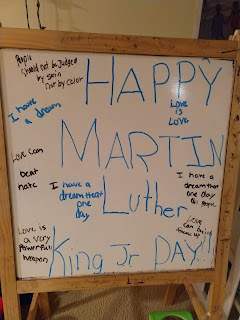 People
should not be Judged
by skin
nor by color
HAPPY
I have
a dream
Love
is
Love
MARTIN
Love Can
beat
hate
I have a
dream that
one
day
Luther
I have a
dream that
one day
all people
Love is
a very
Powerful
weapon
Love
can
King Jr DAY!!